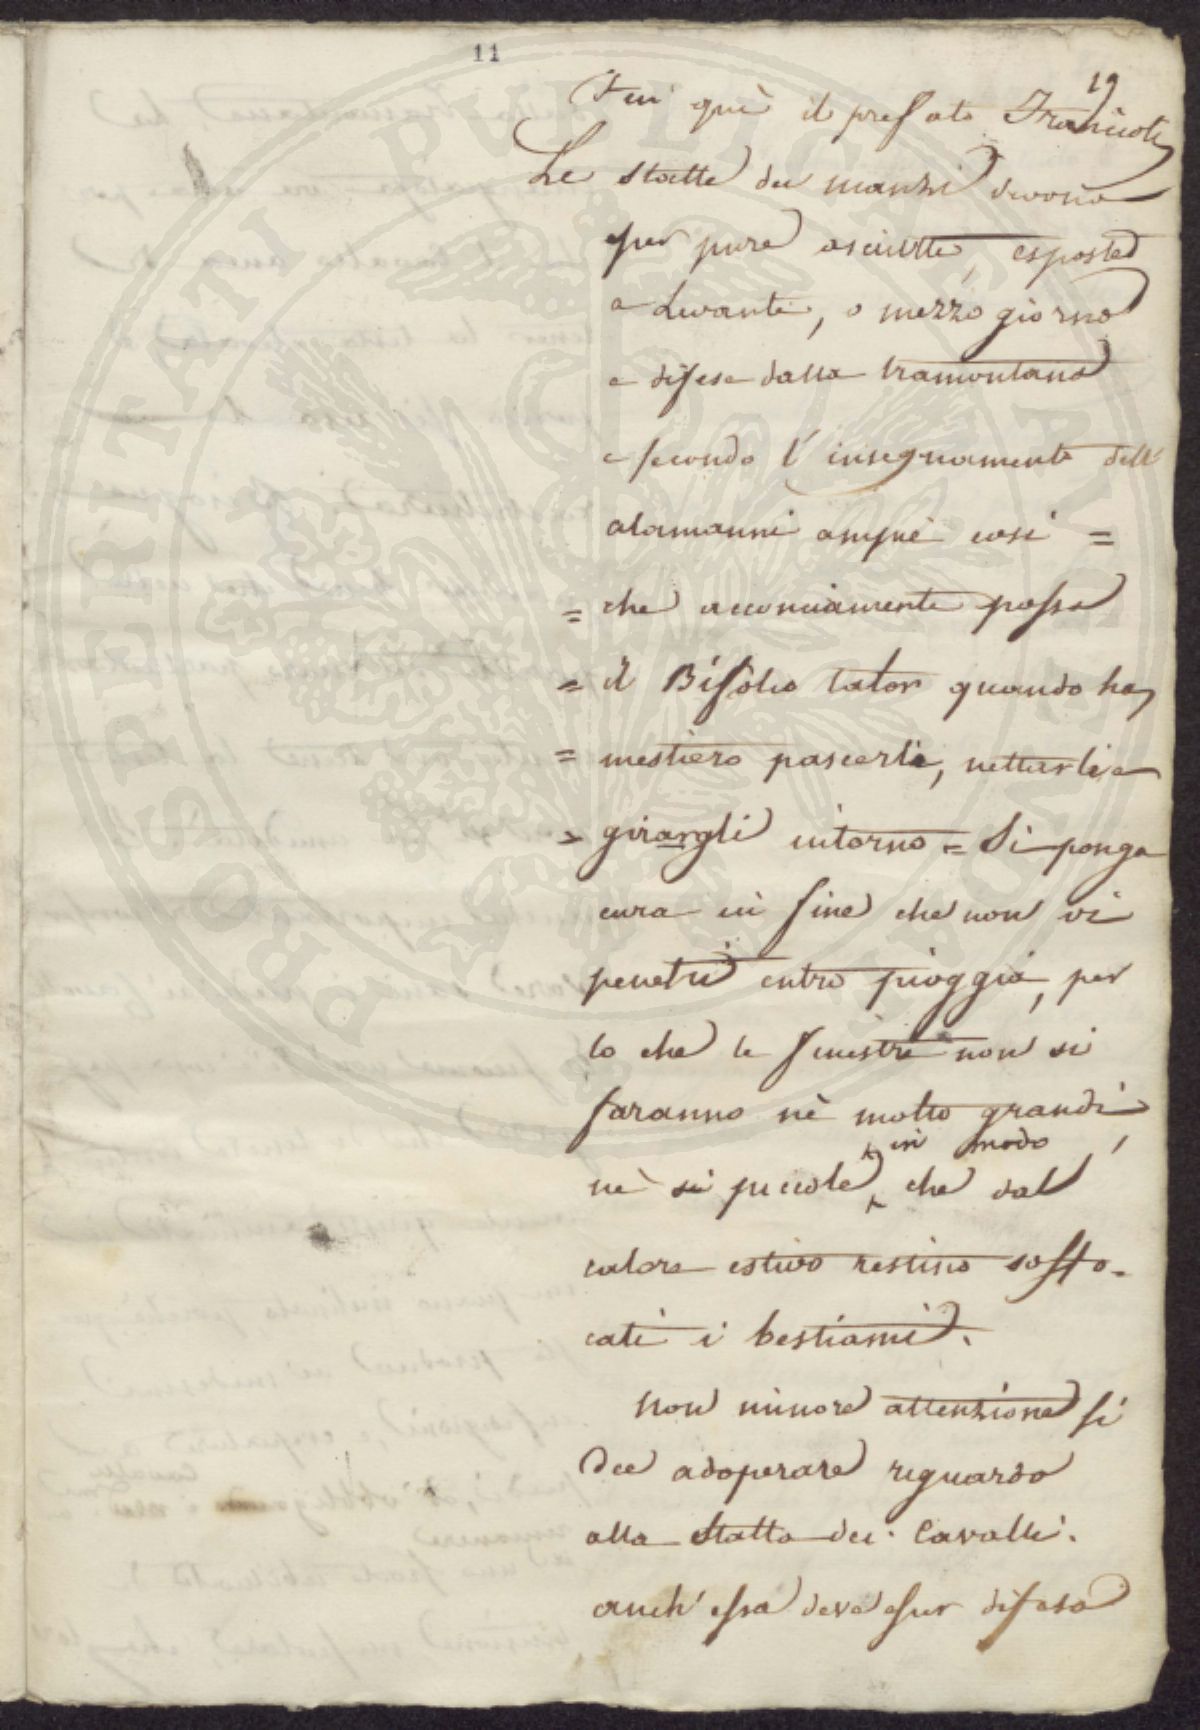 11
19
Fin quì il prefato Francioli
Le stalle dei manzi devono
esser pure asciutte, esposte
a Levante, o mezzo giorno
e difese dalla tramontana
e secondo l'insegnamento dell'
alamanni ampie così =
= che acconciamente possa
= il Bifolco talor quando ha
= mestiero pascerli, nettarli e
= girargli intorno = Si ponga
cura in fine che non vi
penetri entro pioggia, per
lo che le finestre non si
faranno nè molto grandi,
in modo
nè si piccole, che dal
calore estivo restino soffo-
cati i bestiami.
Non minore attenzione si
dee adoperare riguardo
alla Stalla dei Cavalli.
anch'essa deve esser difesa
PROSPERITATI PUBLICAE AUGENDAE